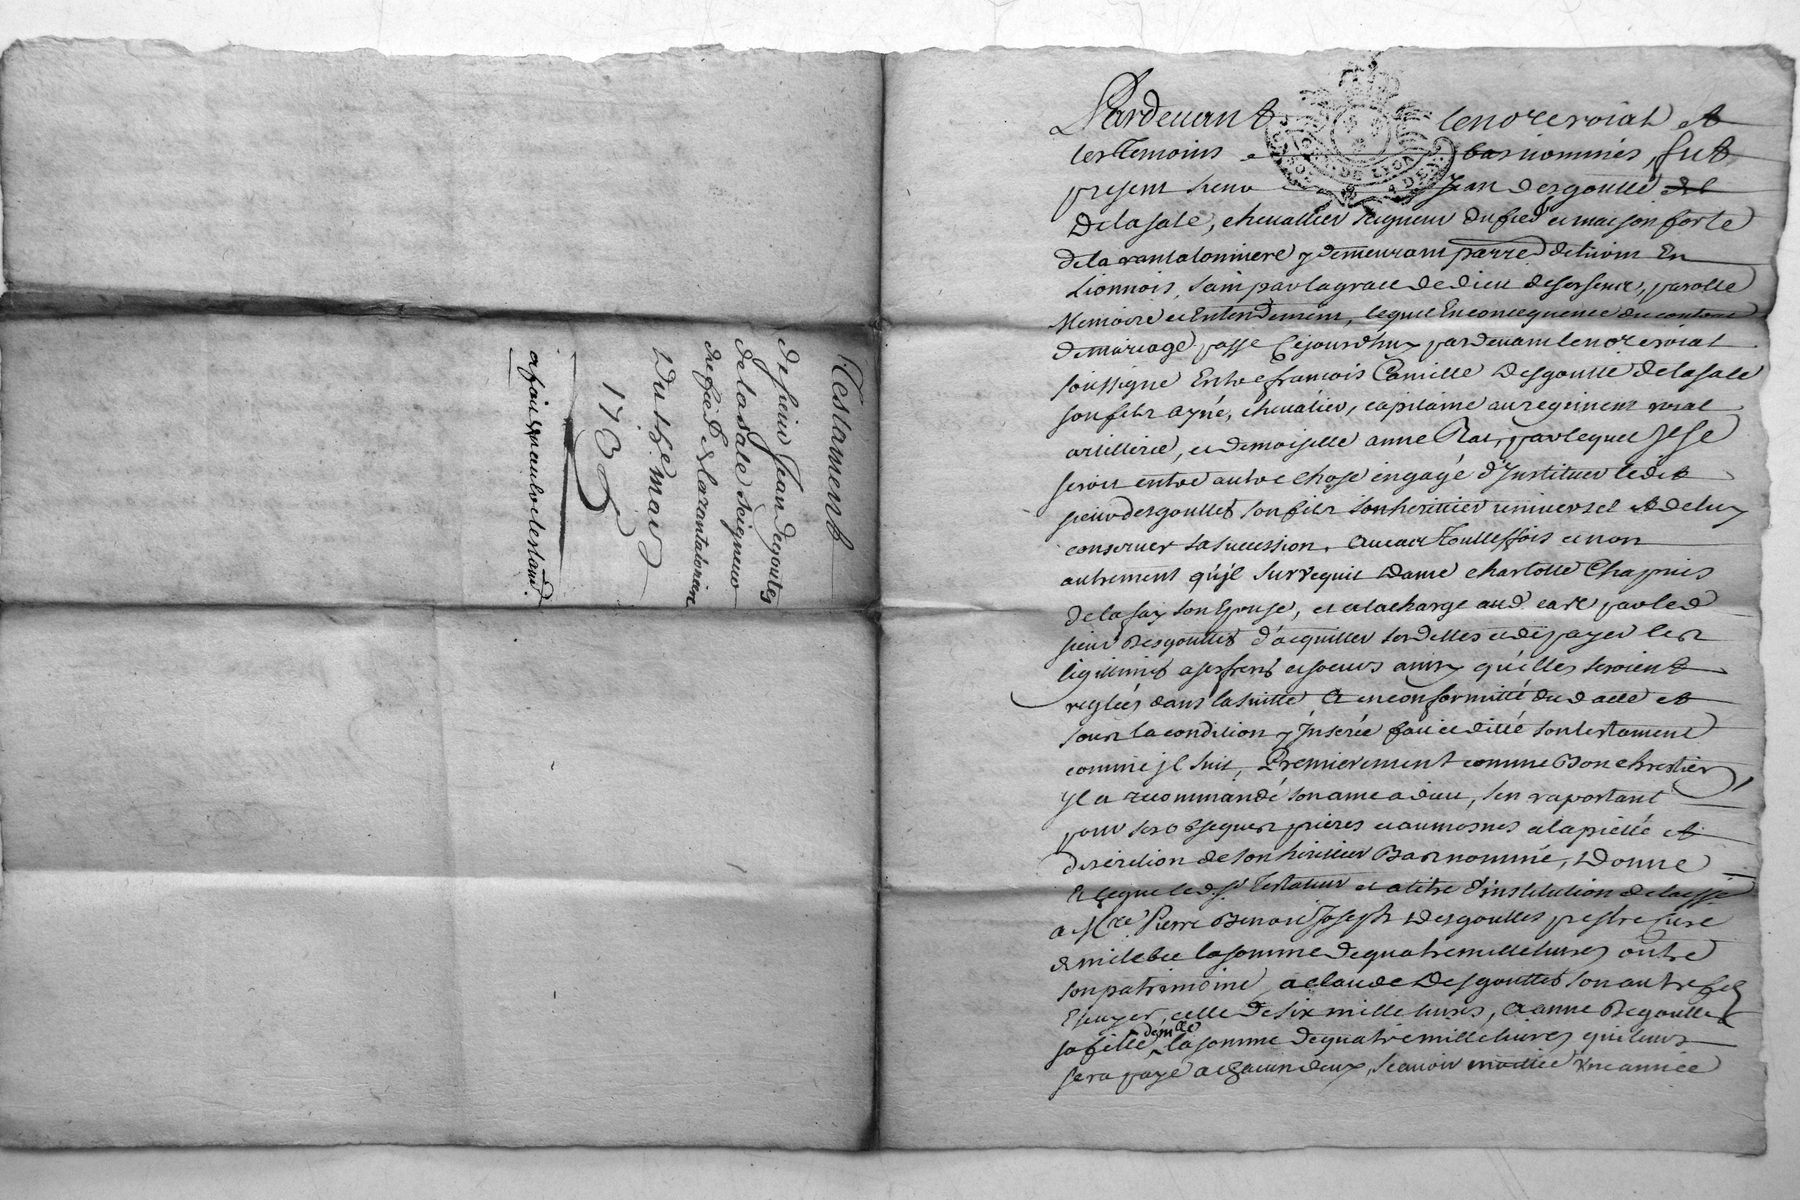 Testament
de sieur Jean Degoutes
de la Sale seigneur
du fief de la rantalonière
Du 18e. mars
1736
a fait un autre testamt.
Pardevant le no.re roial et
les Temoins bas nommés, fut
present sieur Jean Desgoutte
Delasale, chevallier seigneur du fief et maison forte
de la rantalonniere y demeurant parre de
Lionnois, sain par la grace de dieu de ses sens, parolle
Memoire et Entendement, lequel En consequence du contrat
de mariage passé cejourdhuy pardevant le no.re roial
soussigné Entre francois Camille Desgoutte delasale
son fils ayné, chevalier, capitaine au regiment roial
artillerie, et demoiselle anne par lequel Jl se
seroit entre autre chose engagé d'Jnstituer ledit
sieur desgouttes son fils son heritier universel et de luy
conserver sa sucession, au cas Touttesfois et non
autrement qu'jl survequit Dame charlotte Chapuis
de la son Epouse, et a la charge aud. cas par led
sieur Desgouttes d'acquitter ses dettes et de payer les
legitimes a ses freres et soeurs ainsy qu'elles seroient
reglées dans la suitte, Et en conformitté dud acte et
sous la condition y Jnserée fait et ditté son testament
comme jl suit, Premierement comme Bon chrestien
jl a recommandé son ame a dieu, s'en raportant
pour ses obseques prieres et aumosnes a la pietté et
discretion de son heritier Bas nommé, Donne
& legue led. sr. Testateur et a titre d'institution delaisse
a Mre Pierre Benoit Joseph Desgouttes prestre curé
de la somme de quatre mille livres outre
son patrimoine, a claude Desgouttes son autre fils
Ecuyer, celle de six mille livres, a anne Degouttes
sa fille demlle la somme de quatre mille livres qui leurs
sera payé a chacun deux, scavoir moitié une année